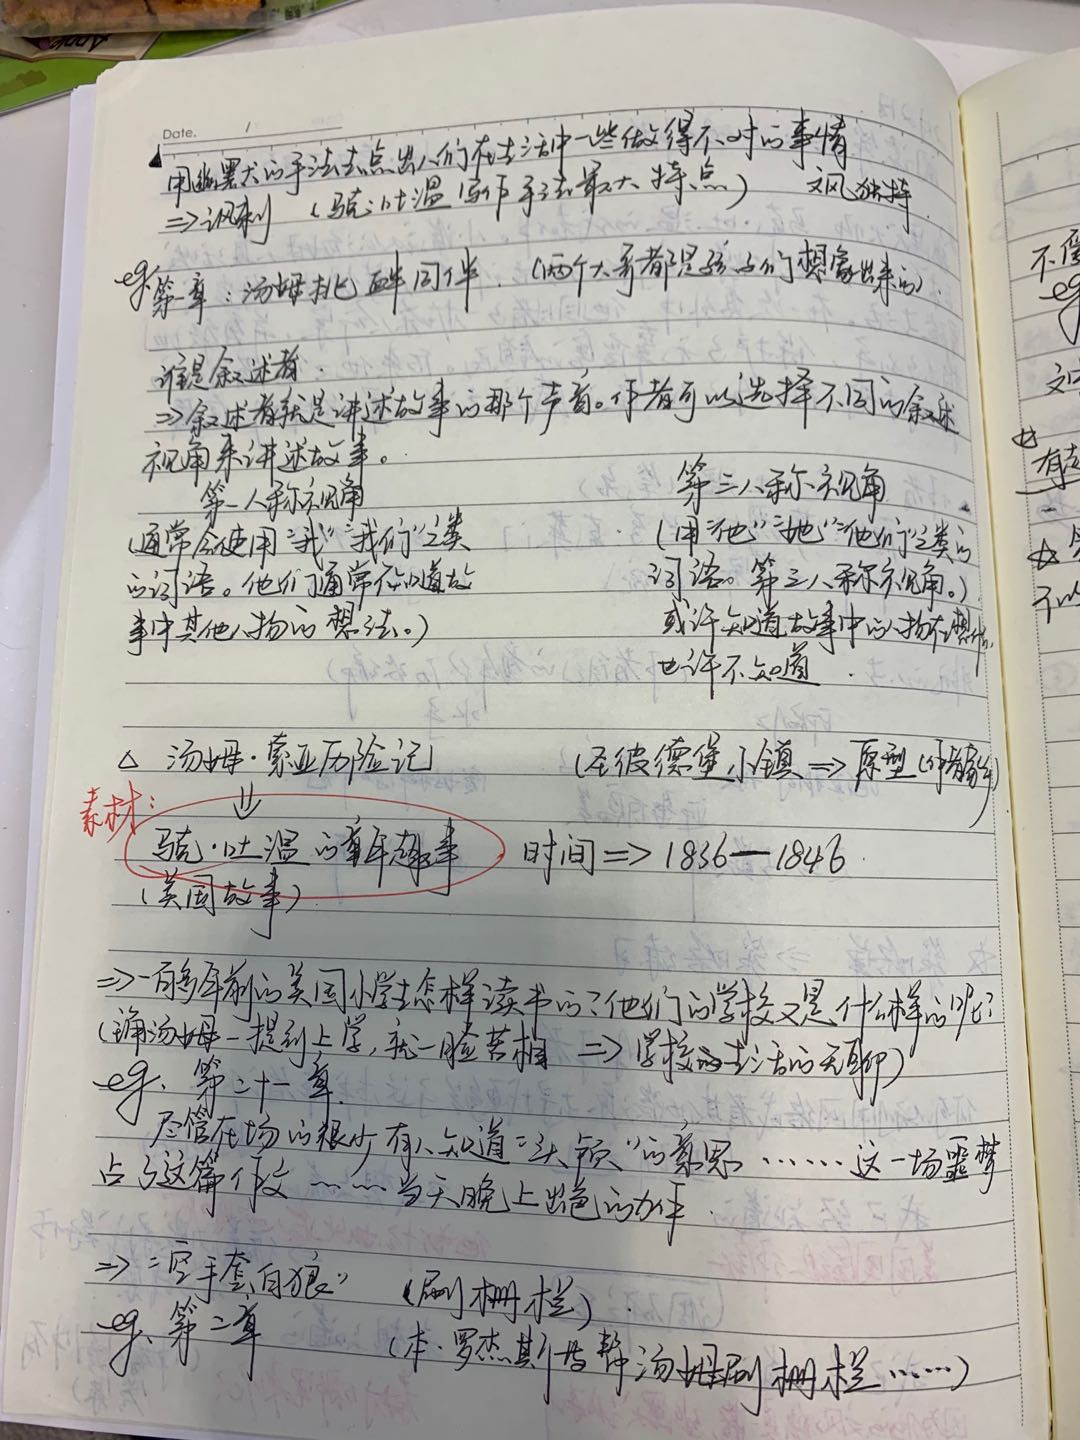 Apple
Date. 1
用幽默大的手法去点出人们在生活中一些做得不对的事情
=>讽刺 (马克·吐温写作手法最大特点) 文风独特
eg.第一章:汤姆挑衅同伴. (两个大哥都是孩子们想象出来的).
谁是叙述者.
=>叙述者就是讲述故事的那个声音。作者可以选择不同的叙述
视角来讲述故事。
第一人称视角
(通常会使用"我""我们"之类
的词语。他们通常不知道故
事中其他人物的想法。)
第三人称视角
(用"他""她""他们"之类的
词语。第三人称视角。)
或许知道故事中的人物在想什么,
也许不知道.
△ 汤姆·索亚历险记 (圣彼德堡小镇=>原型
素材:
马克·吐温的童年趣事 时间=>1836—1846.
(美国故事)
=>一百多年前的美国小学生怎样读书的?他们的学校又是什么样的呢?
(汤姆一提到上学,就一脸苦相 =>学校的生活的无聊)
eg. 第二十一章.
尽管在场的很少有人知道"头颅"的意思……这一场噩梦
占了这篇作文……当天晚上出色的力作.
=>"空手套白狼" (刷栅栏).
eg. 第二章 (本·罗杰斯帮汤姆刷栅栏……)
不
eg
文
有
不以